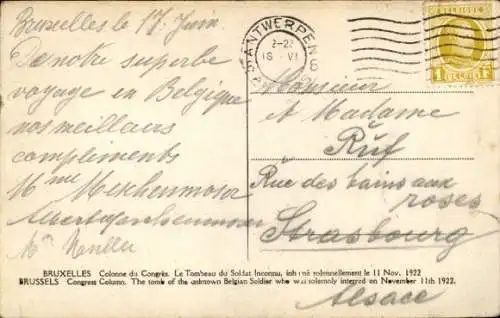 Bruxelles le 17 Juin
De notre superbe
voyage en Belgique
nos meilleurs
compliments
Mme Meschenmoser
Albert Meschenmoser
ANTWERPEN 6
18 VI
BELGIE
1 F
BELGIQUE
Monsieur
et Madame
Ruf
Rue des bains aux
roses
Strasbourg
Alsace
BRUXELLES Colonne du Congrès. Le Tombeau du Soldat Inconnu, inhumé solennellement le 11 Nov. 1922
BRUSSELS Congress Column. The tomb of the unknown Belgian Soldier who was solemnly interred on November 11th 1922.